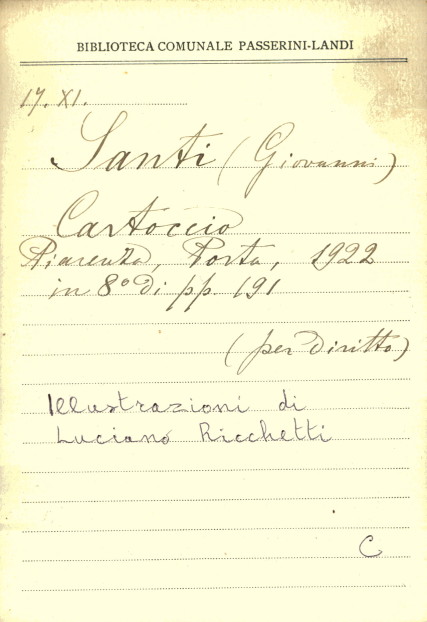 BIBLIOTECA COMUNALE PASSERINI-LANDI
17. XI.
Santi (Giovanni)
Cartoccio
Piacenza, Porta, 1922
in 8° di pp. 191
(per diritto)
Illustrazioni di
Luciano Ricchetti
C